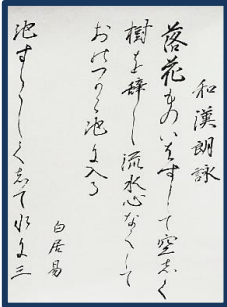 和漢朗詠
落花ものいはすして空しく
樹を辞し流水心なくして
おのつから池に入る
白居易
池すゝしくして水に三